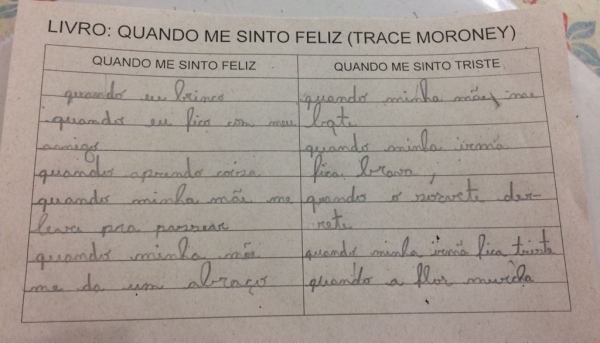 LIVRO: QUANDO ME SINTO FELIZ (TRACE MORONEY)
QUANDO ME SINTO FELIZ
quando eu brinco
quando eu fico com meu
amigo
quando aprendo coisa
quando minha mãe me
leva pra passear
quando minha mãe
me da um abraço
QUANDO ME SINTO TRISTE
quando minha mãe me
bate
quando minha irmã
fica brava,
quando o sorvete der-
rete
quando minha irmã fica triste
quando a flor murcha